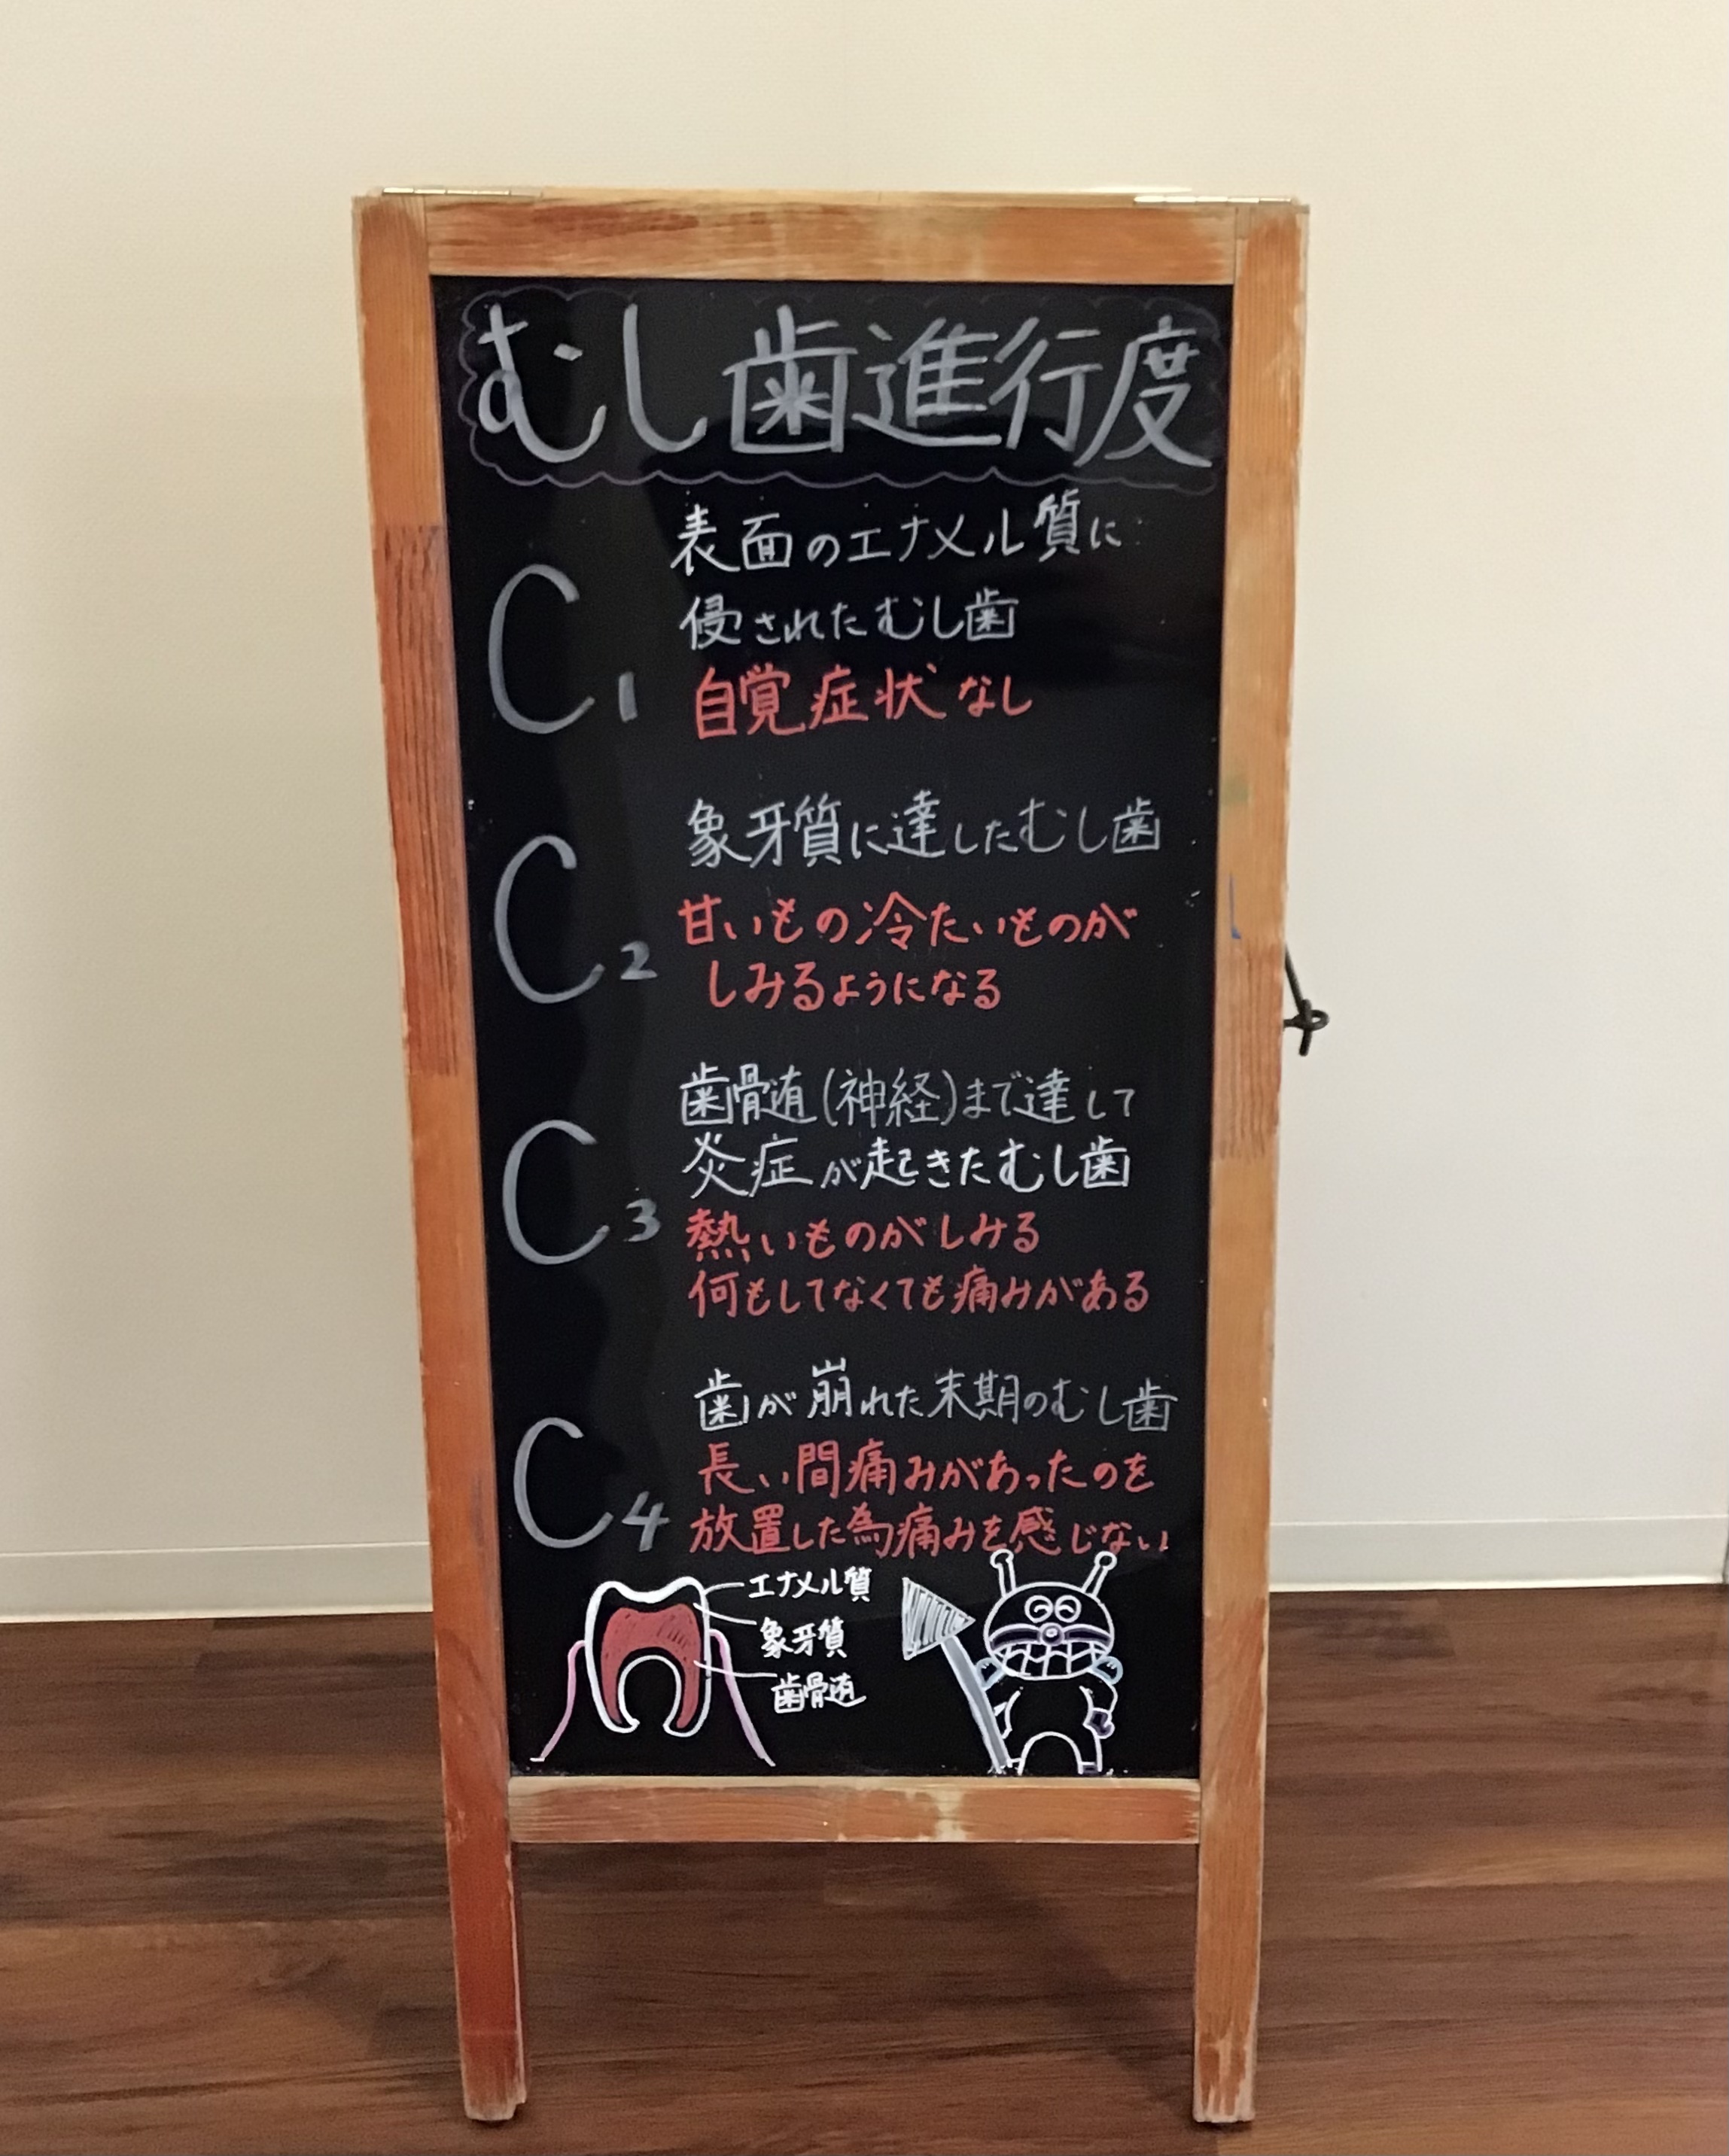 むし歯進行度
C1
表面のエナメル質に
侵されたむし歯
自覚症状なし
C2
象牙質に達したむし歯
甘いもの冷たいものが
しみるようになる
C3
歯骨髄(神経)まで達して
炎症が起きたむし歯
熱いものがしみる
何もしてなくても痛みがある
C4
歯が崩れた末期のむし歯
長い間痛みがあったのを
放置した為痛みを感じない
エナメル質
象牙質
歯骨髄